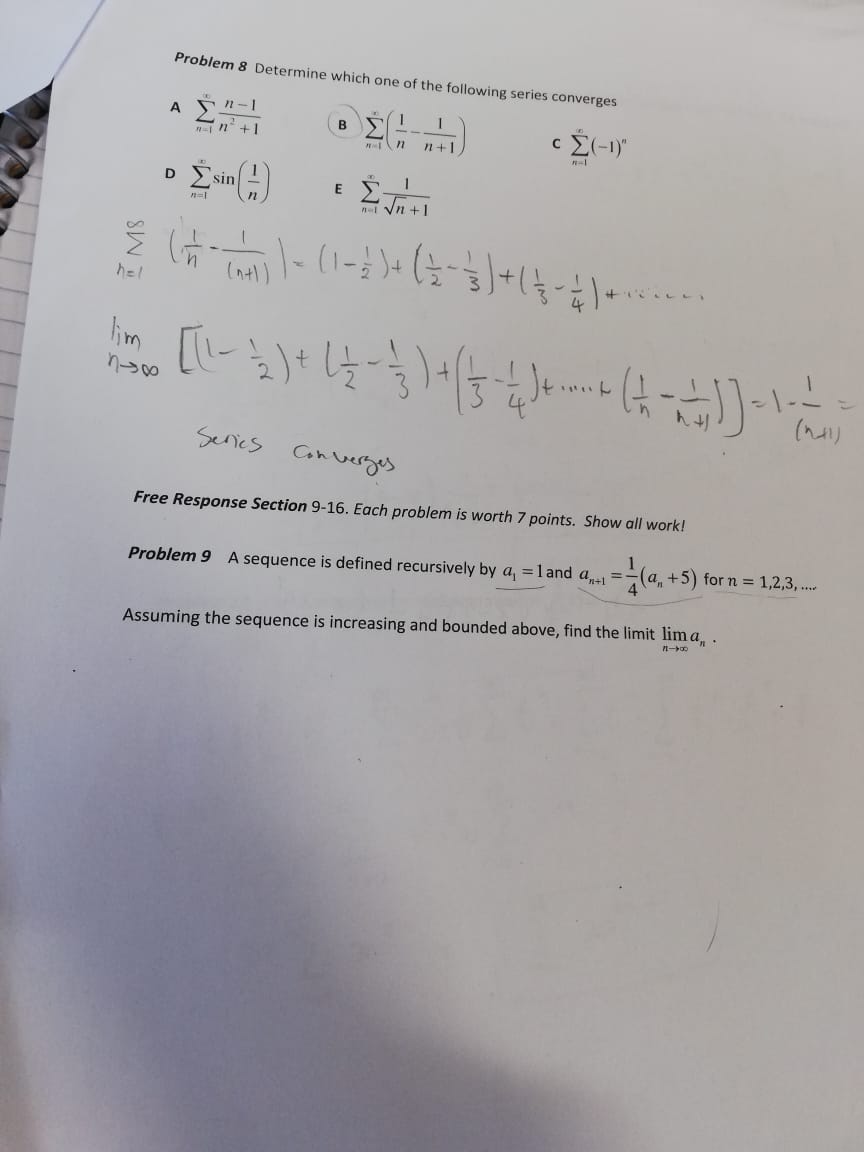 Problem 8 Determine which one of the following series converges
A ∑_{n=1}^{∞} (n-1)/(n²+1) B ∑_{n=1}^{∞} (1/n - 1/(n+1)) C ∑_{n=1}^{∞} (-1)ⁿ
D ∑_{n=1}^{∞} sin(1/n) E ∑_{n=1}^{∞} 1/(√n+1)
∑_{n=1}^{∞} (1/n - 1/(n+1)) = (1 - 1/2) + (1/2 - 1/3) + (1/3 - 1/4) + ........
lim_{n→∞} [(1 - 1/2) + (1/2 - 1/3) + (1/3 - 1/4) + ..... + (1/n - 1/(n+1))] = 1 - 1/(n+1) =
Series Converges
Free Response Section 9-16. Each problem is worth 7 points. Show all work!
Problem 9 A sequence is defined recursively by a₁ = 1 and aₙ₊₁ = 1/4 (aₙ + 5) for n = 1,2,3, ....
Assuming the sequence is increasing and bounded above, find the limit lim_{n→∞} aₙ .